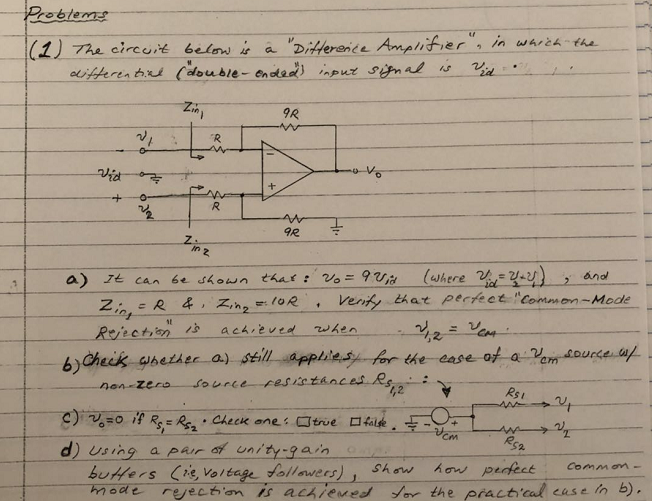 Problems
(1) The circuit below is a "Difference Amplifier", in which the
differential ("double-ended") input signal is Vid.
Zin1
9R
V1
R
-
-
Vid
Vo
+
+
V2
R
9R
Zin2
a) It can be shown that: Vo = 9Vid (where Vid = V2-V1), and
Zin1 = R & Zin2 = 10R. Verify that perfect "Common-Mode
Rejection" is achieved when V1,2 = Vcm.
b) Check whether a) still applies, for the case of a Vcm source w/
non-zero source resistances Rs1,2 :
Rs1
V1
c) Vo=0 if Rs1=Rs2. Check one: □ true □ false.
- +
Vcm
V2
Rs2
d) Using a pair of unity-gain
buffers (ie, voltage followers), show how perfect common-
mode rejection is achieved for the practical case in b).